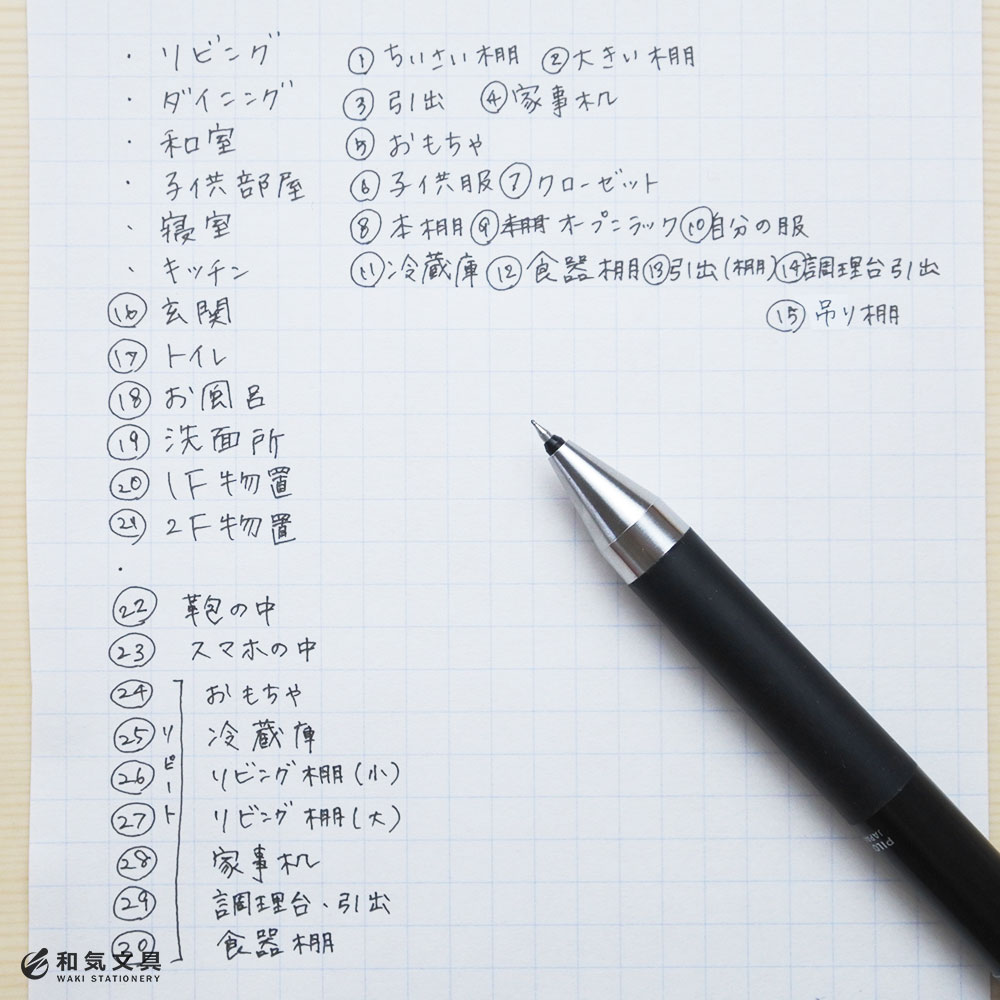 ・リビング ①ちいさい棚 ②大きい棚
・ダイニング ③引出 ④家事机
・和室 ⑤おもちゃ
・子供部屋 ⑥子供服 ⑦クローゼット
・寝室 ⑧本棚 ⑨オープンラック ⑩自分の服
・キッチン ⑪冷蔵庫 ⑫食器棚 ⑬引出(棚) ⑭調理台引出
⑯玄関 ⑮吊り棚
⑰トイレ
⑱お風呂
⑲洗面所
⑳1F物置
㉑2F物置
・
㉒鞄の中
㉓スマホの中
リピート
㉔おもちゃ
㉕冷蔵庫
㉖リビング棚(小)
㉗リビング棚(大)
㉘家事机
㉙調理台・引出
㉚食器棚
和気文具
WAKI STATIONERY